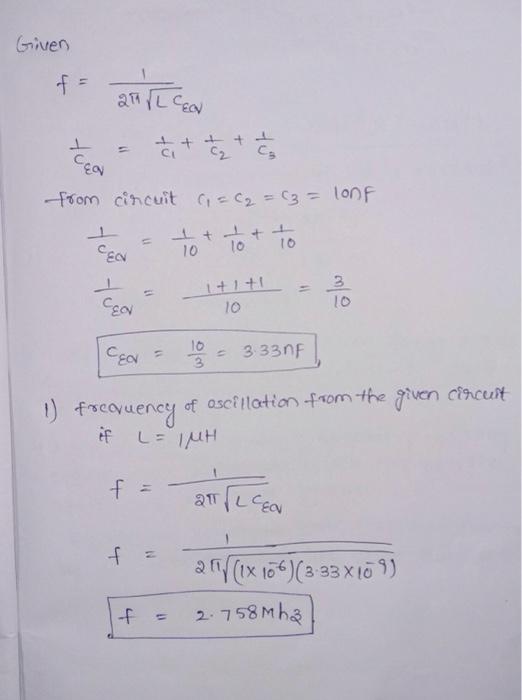 Given
f = 1 / 2π√L CEQ
1/CEQ = 1/C1 + 1/C2 + 1/C3
from circuit C1 = C2 = C3 = 10nF
1/CEQ = 1/10 + 1/10 + 1/10
1/CEQ = 1+1+1 / 10 = 3/10
CEQ = 10/3 = 3.33nF
1) frequency of oscillation from the given circuit
if L = 1μH
f = 1 / 2π√L CEQ
f = 1 / 2π√(1×10^-6)(3.33×10^-9)
f = 2.758Mhz